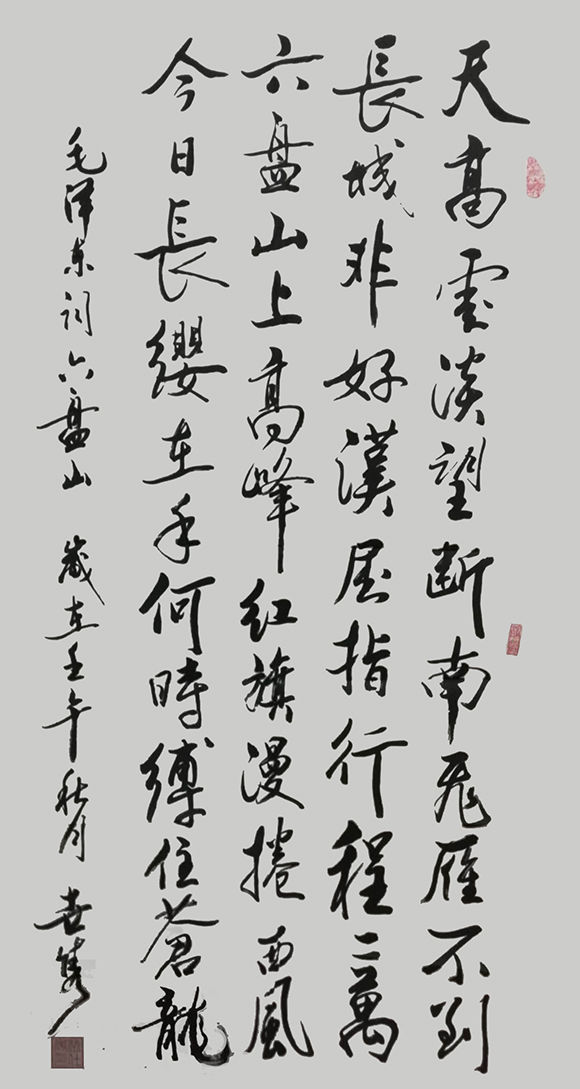 天高雲淡望断南飛雁不到
長城非好漢屈指行程二萬
六盘山上高峰红旗漫捲西風
今日長纓在手何時縛住蒼龍
毛泽东词六盘山 歲在壬午秋月 世